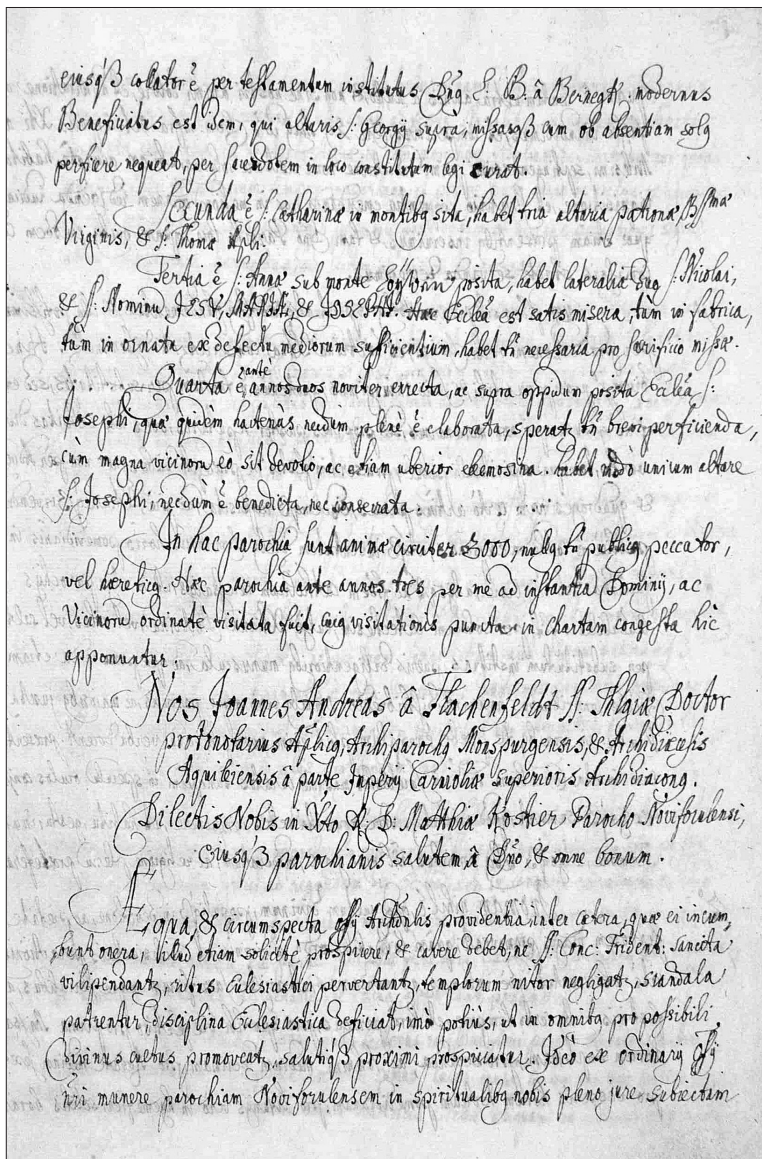 eiusq́ß collator ẽ per testamentum institutus Dñg L: B: â Bernegk: modernus
Beneficiatus est Idem, qui altaris S: Georgÿ supra, missasq́ß cum ob absentiam solg
perficere nequeat, per sacerdotem in loco constitutum legi curat.
Secunda ẽ S: Catharinæ in montibg sita, habet tria altaria patronæ, Bssmæ
Virginis, & S: Thomæ Apli.
Tertia ẽ S: Annæ sub monte posita, habet lateralia dug S: Nicolai,
& S: Nominũ JESV, MARIÆ, & JOSEPHI. Hæc Ecclẽa est satis misera, tùm in fabrica,
tum in ornatu ex defectu mediorum sufficientium, habet tñ necessaria pro sacrificio missæ.
Quarta ẽ antè annos duos noviter errecta, ac supra oppidum posita Ecclẽa S:
Josephi, quæ quidèm hactenùs necdum plenè ẽ elaborata, speratz tñ brevi perficienda,
cùm magna vicinorũ eò sit devotio, ac etiam uberior elemosina. habet modo unicum altare
S: Josephi, necdùm ẽ benedicta, nec consecrata.
In hac parochia sunt animæ circiter 3000, nullg tñ publicg peccator,
vel hæreticg. Hæc parochia ante annos tres per me ad instantiã Dominÿ, ac
Vicinorũ ordinatè visitata fuit, cuig visitationis puncta in chartam congesta hìc
apponuntur
Nos Joannes Andreas â Flachenfeldt SS: Thlgiæ Doctor
protonotarius Aplicg, Archiparochg Monspurgensis, & Archidiœcesis
Aquileiensis â parte Imperÿ Carnioliæ Superioris Archidiacong.
Dilectis Nobis in Xto R: D: Matthiæ Kostier Parocho Noviforulensi,
eiusq́ß parochianis salutem â Dño, & omne bonum.
Æqua, & circumspecta offÿ Archidnlis providentia, inter cætera, quæ ei incum,,
bunt onera, illud etiam solicitè prospicere, & cavere debet, ne SS: Conc: Trident: sancita
vilipendantz, ritus Eclesiastici pervertantz, templorum nitor negligatz, scandala
patrentur, disciplina Eclesiastica deficiat, imò potiùs, ut in omnibg pro possibili
Divinus cultus promoveatz, salutiq́ß proximi prospiciatur. Ideò ex ordinarÿ offÿ
ñri munere parochiam Noviforulensem in spiritualibg nobis pleno jure subiectam